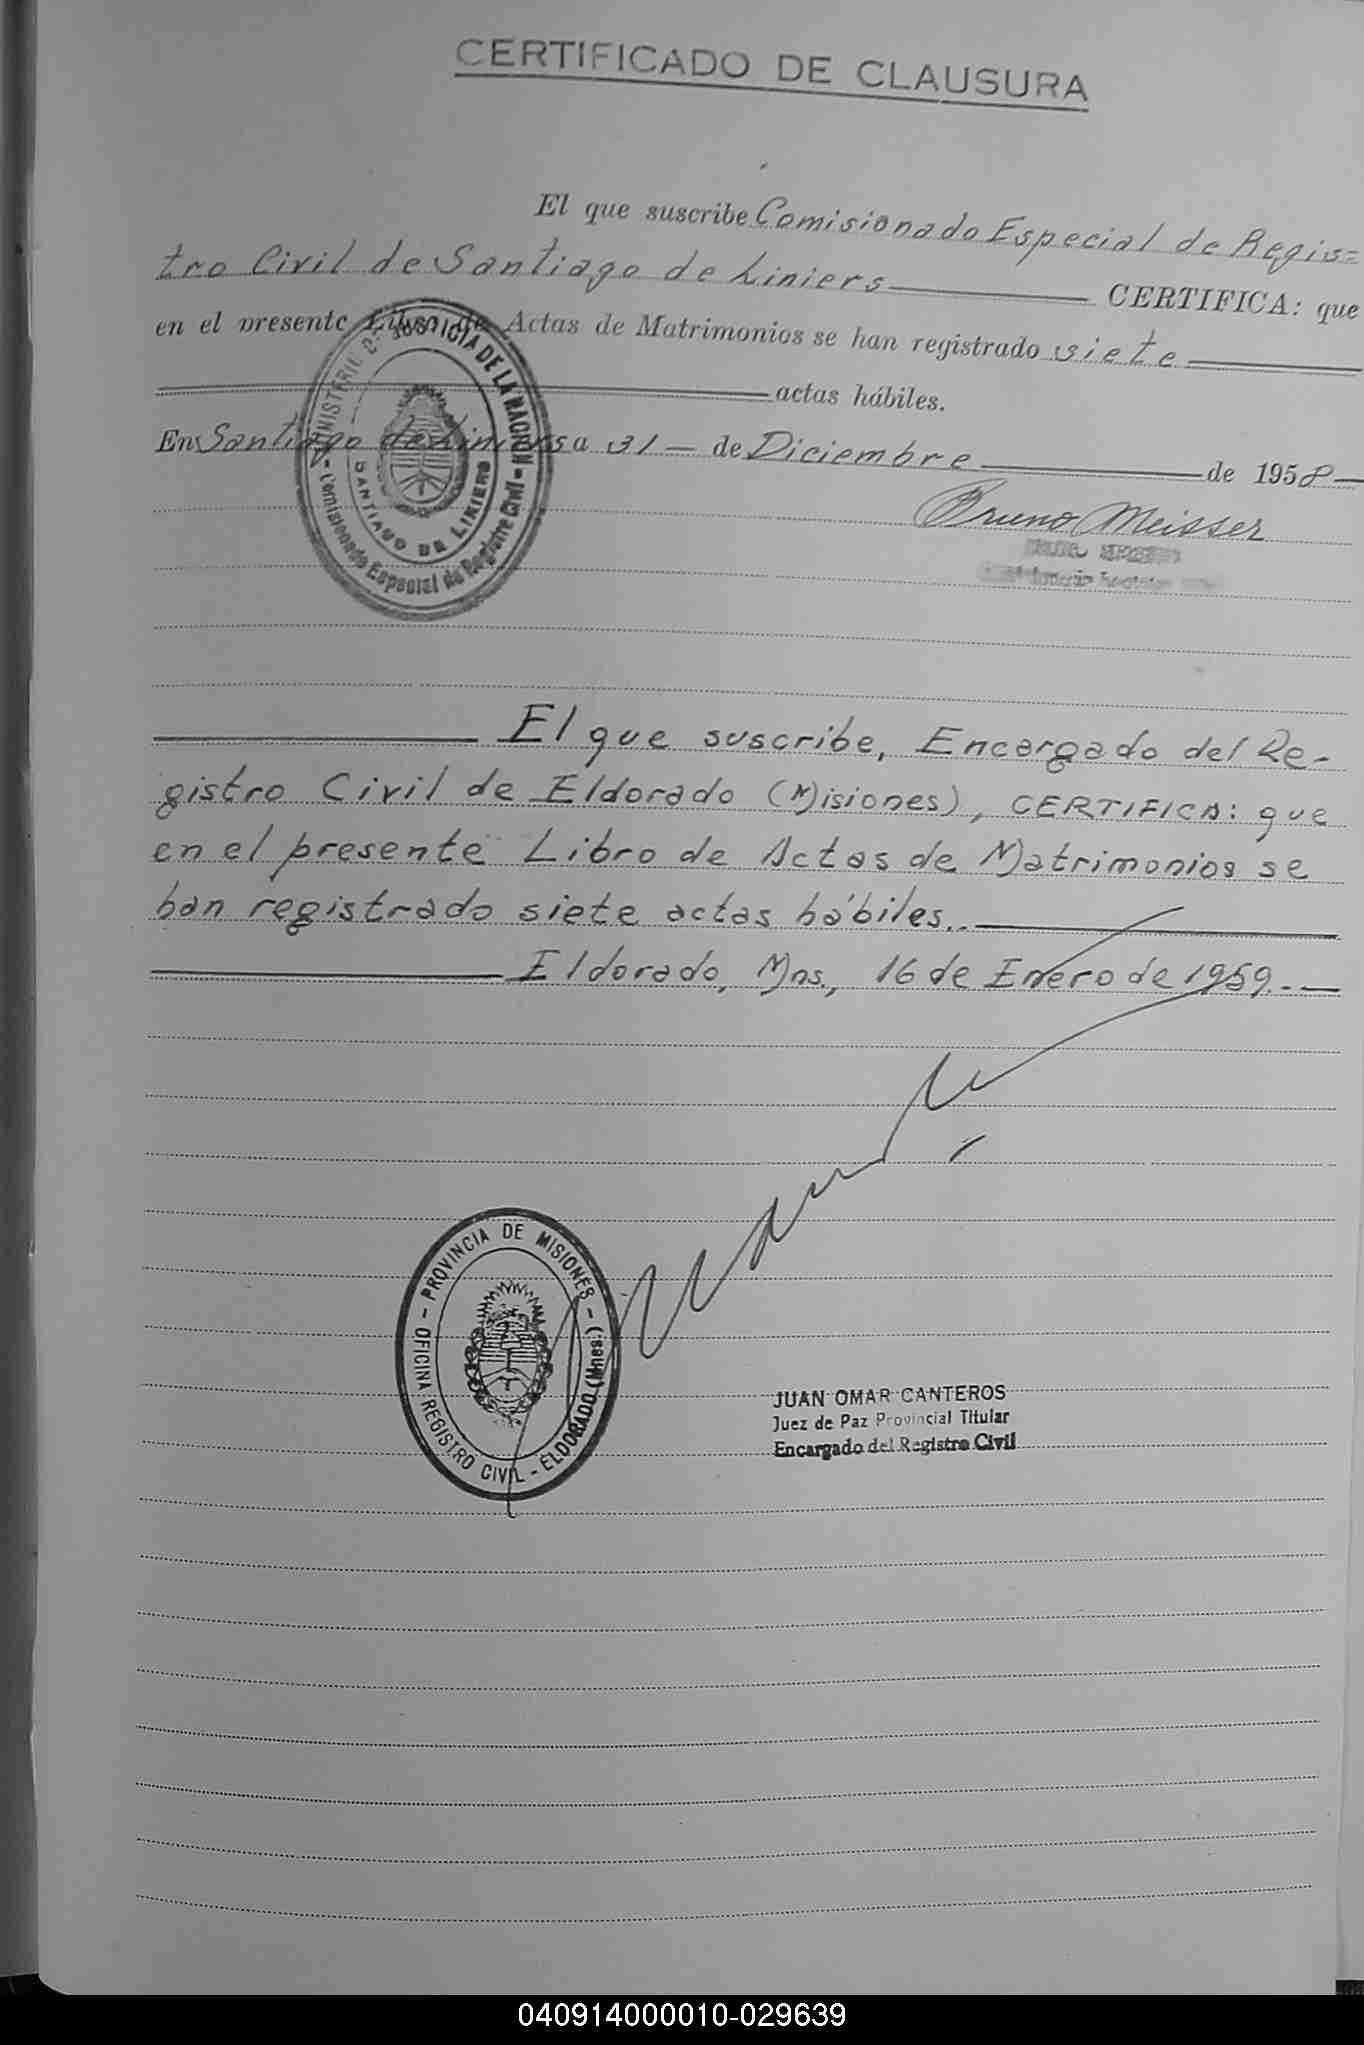 CERTIFICADO DE CLAUSURA
El que suscribe Comisionado Especial de Regis=
tro Civil de Santiago de Liniers CERTIFICA: que
en el presente Libro de Actas de Matrimonios se han registrado siete
actas hábiles.
En Santiago de Liniers a 31 — de Diciembre de 1958 —
MINISTERIO DE JUSTICIA DE LA NACION - Comisionado Especial de Registro Civil -
SANTIAGO DE LINIERS
Bruno Meisser
El que suscribe, Encargado del Re-
gistro Civil de Eldorado (Misiones), CERTIFICA: que
en el presente Libro de Actas de Matrimonios se
han registrado siete actas hábiles..
Eldorado, Mns., 16 de Enero de 1959.-
- PROVINCIA DE MISIONES - (Mnes.)
OFICINA REGISTRO CIVIL - ELDORADO
JUAN OMAR CANTEROS
Juez de Paz Provincial Titular
Encargado del Registro Civil
040914000010-029639